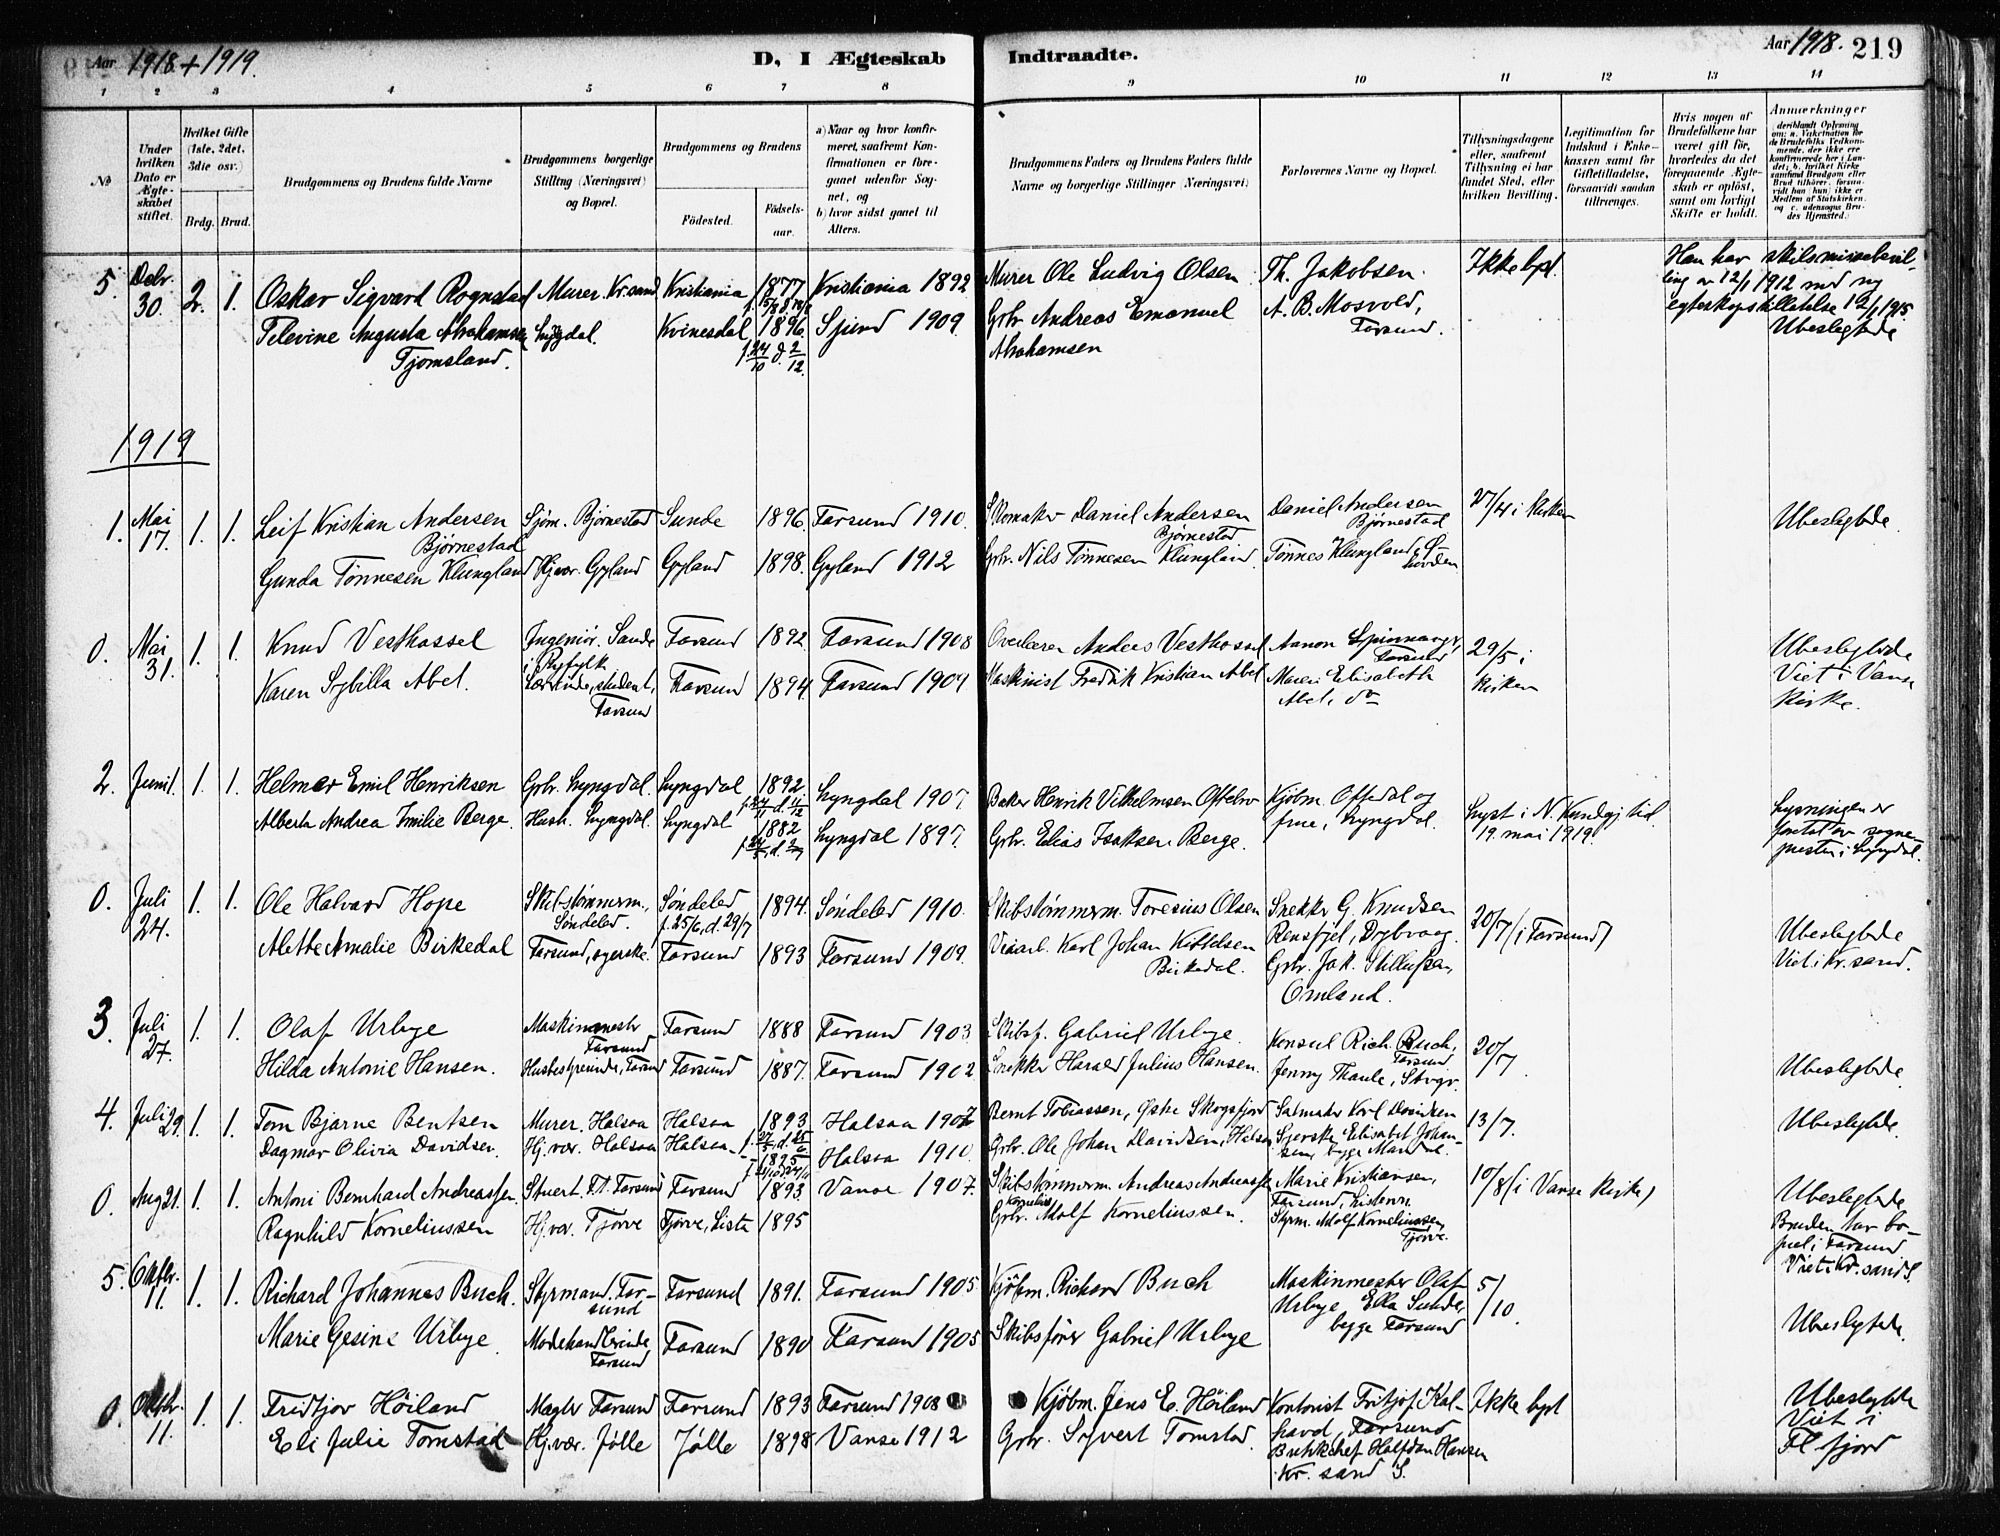 Aar 1918 + 1919.
D, I Ægteskab Indtraadte.
Aar 1918. 219
1 2 3 4 5 6 7 8 9 10 11 12 13 14
No
Under hvilken Dato er Ægteskabet stiftet.
Hvilket Gifte (1ste, 2det, 3die osv.)
Brdg. Brud.
Brudgommens og Brudens fulde Navne
Brudgommens borgerlige Stilling (Næringsvei) og Bopæl.
Brudgommens og Brudens
Fødested. Fødselsaar.
a) Naar og hvor konfirmeret, saafremt Konfirmationen er foregaaet udenfor Sognet, og
b) hvor sidst gaaet til Alters.
Brudgommens Faders og Brudens Faders fulde Navne og borgerlige Stillinger (Næringsvei)
Forlovernes Navne og Bopæl.
Tillysningsdagene eller, saafremt Tillysning ei har fundet Sted, efter hvilken Bevilling.
Legitimation for Indskud i Enkekassen samt for Giftetilladelse, forsaavidt saadan tiltrænges.
Hvis nogen af Brudefolkene har været gift før, hvorledes da det foregaaende Ægteskab er opløst, samt om lovligt Skifte er holdt.
Anmærkninger
5. Debr. 30. 2. 1. Oskar Sigvard Rognstad Murer. Kr.sand Kristiania 1877 Kristiania 1892 Murer Ole Ludvig Olsen Th. Jakobsen. Ikke lyst. Han har skilsmissebevilling av 12/1 1912 med ny egteskapstilladelse 12/1 1915
Televine Augusta Abrahamsen Tjomsland. Lyngdal. Kvinesdal 1896. f. 24/10 d. 2/12. Sjund 1909. Grbr Andreas Emanuel Abrahamsen A. B. Mosvold, Farsund. Ubeslegtede
1919
1. Mai 17. 1. 1. Leif Kristian Andersen Bjørnestad Sjøm. Bjørnestad Sunde 1896. Farsund 1910. Skomaker Daniel Andersen Bjørnestad Daniel Andersen Bjørnestad 27/4 i Kirken Ubeslegtede.
Gunda Tønnesen Klungland Hj.vær. Gyland Gyland 1898. Gyland 1912 Grbr. Nils Tønnesen Klungland. Tønnes Klungland,
0. Mai 31. 1. 1. Knud Vesthassel Ingeniør. Sande i Ryfylk Farsund 1892 Farsund 1908 Overlærer Anders Vesthassel Aanon Spinnangr, Farsund 29/5 i Kirken Ubeslegtede
Karen Sybilla Abel. Lærerinde, student, Farsund Farsund 1894. Farsund 1909 Maskinist Fredrik Kristian Abel Maren Elisabeth Abel, do Viet i Vanse Kirke.
2. Juni 1. 1. 1. Helmer Emil Henriksen Grbr. Lyngdal. Lyngdal 1892 Lyngdal 1907. Baker Henrik Vilhelmsen Kjøbm. Oftedal og frue, Lyngdal. Lyst i N. Kundgj.tid. 19. mai 1919. Lysningen er foretat av sognepresten i Lyngdal.
Alberta Andrea Emilie Berge. Hush. Lyngdal. Lyngdal 1882 Lyngdal 1897. Grbr. Elias Isaksen Berge.
0. Juli 24. 1. 1. Ole Halvard Hope Skibstømmerm., Søndeled. Søndeled f. 25/6, d. 29/7 1894. Søndeled 1910. Skibstømmerm. Toresius Olsen Snekker G. Knudsen Rensfjel, Dybvaag. 20/7 (i Farsund) Ubeslegtede
Alette Amalie Birkedal Farsund, syerske. Farsund 1893 Farsund 1909. Viaarl. Karl Johan Kittelsen Birkedal. Grbr. Jak. Omland. Viet i Kr.sand.
3. Juli 27. 1. 1. Olaf Urbye Maskinmestr Farsund Farsund 1888 Farsund 1903. Skibsf. Gabriel Urbye. Konsul Rich. Buch, Farsund 20/7 Ubeslegtede.
Hilda Antonie Hansen. Husbestyrerinde, Farsund Farsund 1887. Farsund 1902 Snekker Harald Julius Hansen. Jenny Thaule, Stvgr.
4. Juli 29. 1. 1. Tom Bjarne Bentsen Murer. Halsaa Halsaa 1893 Halsaa 1907 Bernt Tobiassen, Østre Skogsfjord Salmaker Karl Davidsen 13/7. Ubeslegtede.
Dagmar Olivia Davidsen Hj.vær. Halsaa Halsaa. 1895 Halsaa 1910 Grbr. Ole Johan Davidsen, Halsaa Syerske Elisabet Johansen, begge Mandal.
0. Aug 21. 1. 1. Antoni Bernhard Andreassen. Stuert. Farsund Farsund 1893. Vanse 1907. Skibstømmerm. Andreas Andreassen Marie Kristiansen, Farsund, 10/8 (i Vanse Kirke) Ubeslegtede
Ragnhild Korneliussen Hj.vær. Tjørve Tjørve, Lista 1895 Grbr. Kornelius Adolf Korneliussen. Styrm. Adolf Korneliussen, Tjørve. Bruden har bopæl i Farsund Viet i Kr.sand S.
5. Oktbr. 11. 1. 1. Richard Johannes Buch. Styrmand. Farsund Farsund 1891. Farsund 1905 Kjøbm. Richard Buch Maskinmester Olaf Urbye 5/10. Ubeslegtede.
Marie Gesine Urbye. Modehandlerinde, Farsund Farsund 1890 Farsund 1905 Skibsfører Gabriel Urbye Ella Sunde, begge Farsund
0. Oktbr. 11. 1. 1. Fridtjov Höiland Megler Farsund Farsund 1893 Farsund 1908 Kjöbm. Jens E. Höiland Kontorist Fritjof Kalhavd, Farsund Ikke lyst Ubeslegtede
Eli Julie Tomstad Hj.vær. Jølle Jølle 1898 Vanse 1912 Grbr. Sigvert Tomstad. Butikchef Halfdan Hansen Kr. sand S. Viet i Fl fjord